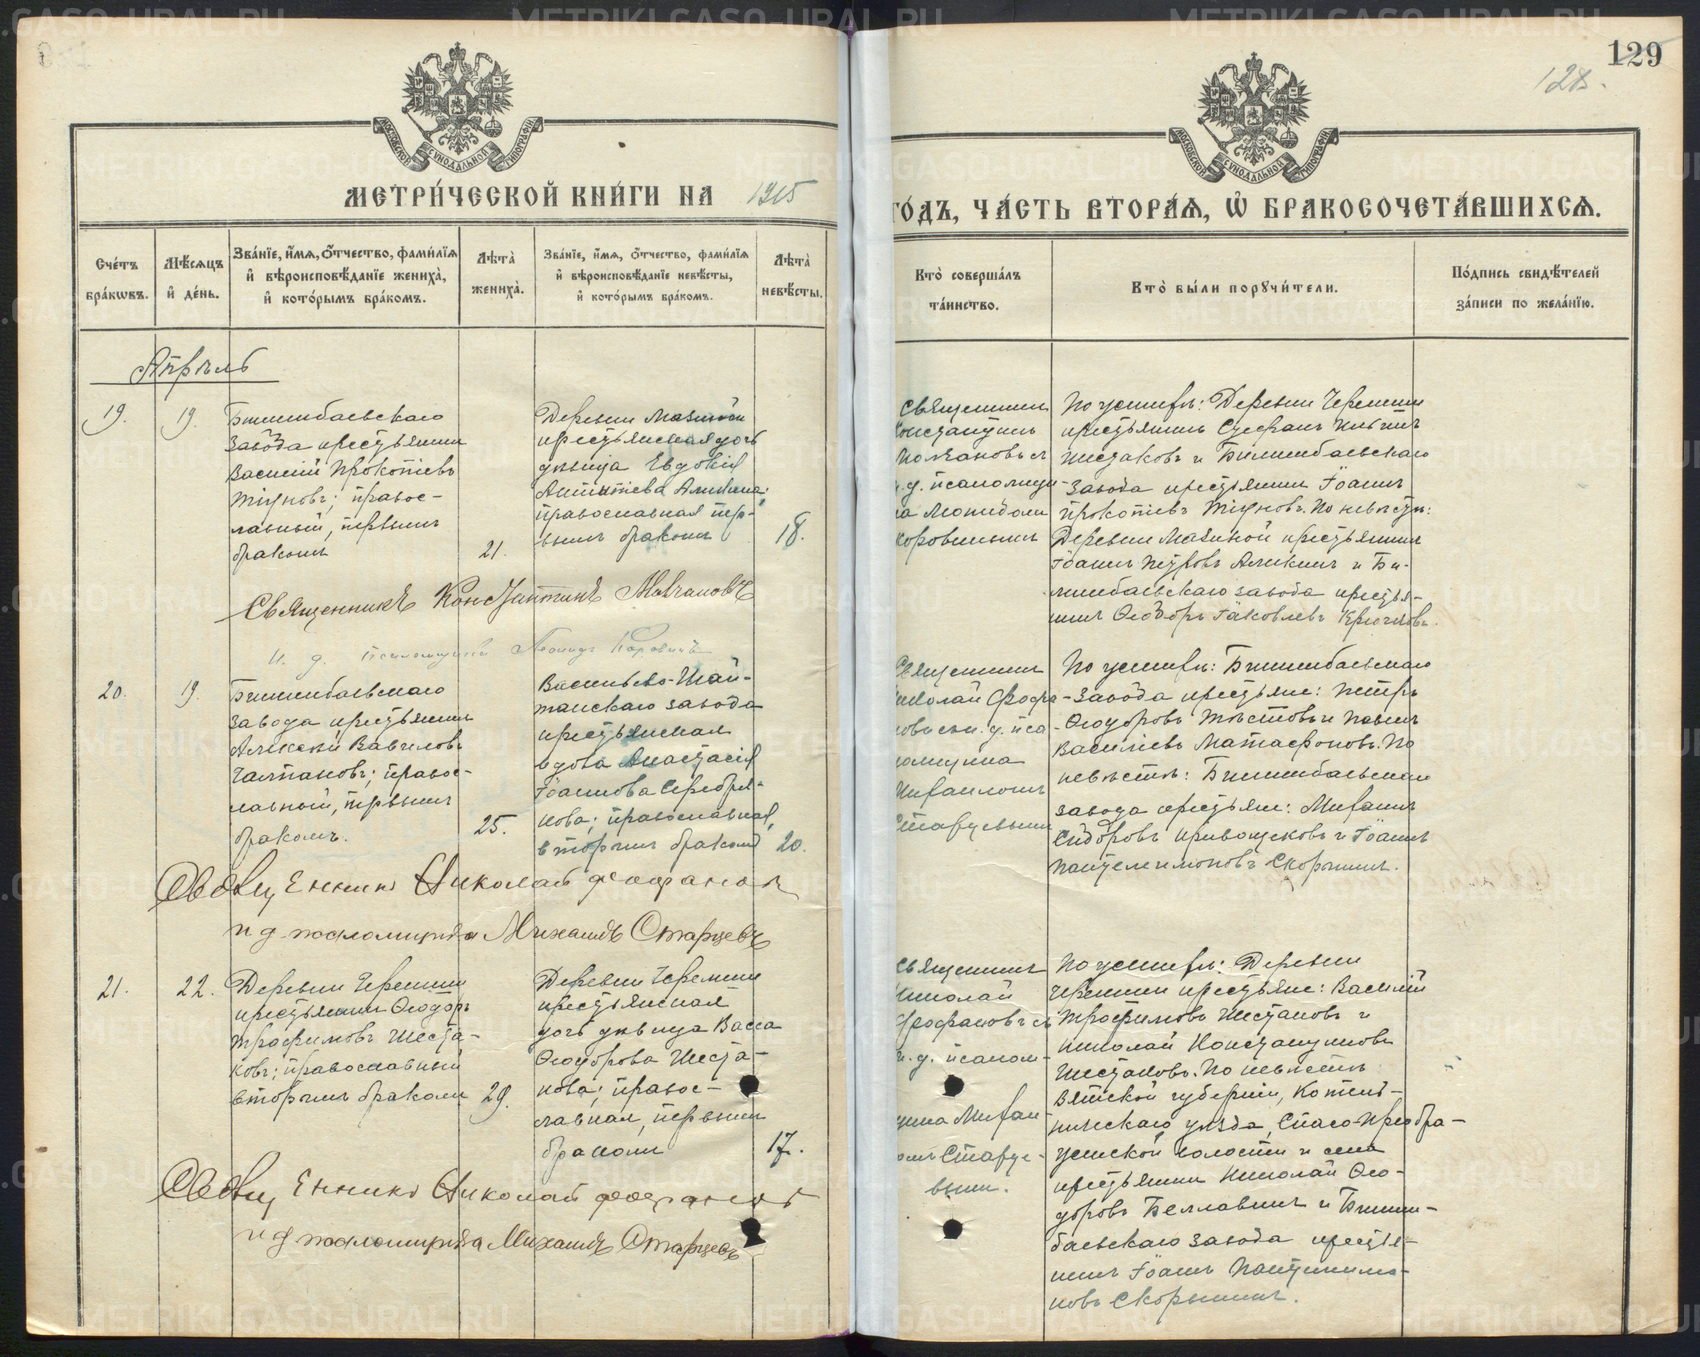 129
128.
МЕТРИ́ЧЕСКОЙ КНИ́ГИ НА 1915
ГО́ДЪ, ЧА́СТЬ ВТОРА́Я, Ѡ҆ БРАКОСОЧЕТА́ВШИХСЯ.
Сче́тъ бра́кѡвъ.
Мѣ́сяцъ и҆ де́нь.
Зва́нїе, и҆́мя, ѻ҆́тчество, фами́лїя
и҆ вѣроисповѣ́данїе жениха̀,
и҆ кото́рымъ бра́комъ.
Лѣта̀ жениха̀.
Зва́нїе, и҆́мя, ѻ҆́тчество, фами́лїя
и҆ вѣроисповѣ́данїе невѣ́сты,
и҆ кото́рымъ бра́комъ.
Лѣта̀ невѣ́сты.
Кто̀ соверша́лъ
та́инство.
Кто̀ бы́ли порꙋчи́тели.
По́дпись свидѣ́телей
за́писи по жела́нїю.
Апрѣль
19.
19.
Билимбаевскаго
завода крестьянинъ
Василій Прокопіевъ
Тіуновъ; правос-
лавный, первымъ
бракомъ
21.
Деревни Мазиной
крестьянская дочь
дѣвица Евдокія
православная пер-
вымъ бракомъ
18.
Священникъ
Константинъ
и.д. псаломщи-
ка Леонидомъ
Коровинымъ
По женихѣ: Деревни Черемши
крестьянинъ Стефанъ Ильинъ
Шестаковъ и Билимбаевскаго
завода крестьянинъ Іоаннъ
Прокопіевъ Тіуновъ. По невѣстѣ:
Деревни Мазиной крестьянинъ
Іоаннъ Петровъ Аликинъ и Би-
лимбаевскаго завода крестья-
нинъ Ѳеодоръ Іаковлевъ Крючковъ.
Священникъ Константинъ Молчановъ
и. д. псаломщика Леонидъ Коровинъ
20.
19.
Билимбаевскаго
завода крестьянинъ
Алексѣй Вавиловъ
православный, первымъ
бракомъ.
25.
Васильево-Шай-
танскаго завода
крестьянская
вдова Анастасія
Іоаннова Серебря-
кова; православная,
вторымъ бракомъ
20.
Священникъ
Николай Феофа-
новъ и. д. пса-
ломщика
Михаиломъ
Старцевымъ
По женихѣ: Билимбаевскаго
завода крестьяне: Петръ
Ѳеодоровъ и Павелъ
Василіевъ Матафоновъ. По
невѣстѣ: Билимбаевскаго
завода крестьяне: Михаилъ
Сидоровъ и Іоаннъ
Пантелеимоновъ Скорынинъ.
Священникъ Николай Феофановъ
и д псаломщика Михаилъ Старцевъ
21.
22.
Деревни Черемши
крестьянинъ Ѳеодоръ
Трофимовъ Шеста-
ковъ; православный
вторымъ бракомъ
29.
Деревни Черемши
крестьянская
дочь дѣвица Васса
Ѳеодорова Шеста-
кова; правос-
лавная, первымъ
бракомъ
17.
Священникъ
Николай
Феофановъ съ
и. д. псалом-
щика Михаи-
ломъ Старце-
вымъ.
По женихѣ: Деревни
Черемши крестьяне: Василій
Трофимовъ Шестаковъ и
Николай Константиновъ
Шестаковъ. По невѣстѣ
Вятской губерніи, Котель-
ническаго уѣзда, Спасо-Преобра-
женской волости и села
крестьянинъ Николай Ѳео-
доровъ и Билим-
баевскаго завода крестья-
нинъ Іоаннъ Пантелеимо-
новъ Скорынинъ.
Священникъ Николай Феофановъ
и д псаломщика Михаилъ Старцевъ
METRIKI.GASO-URAL.RU